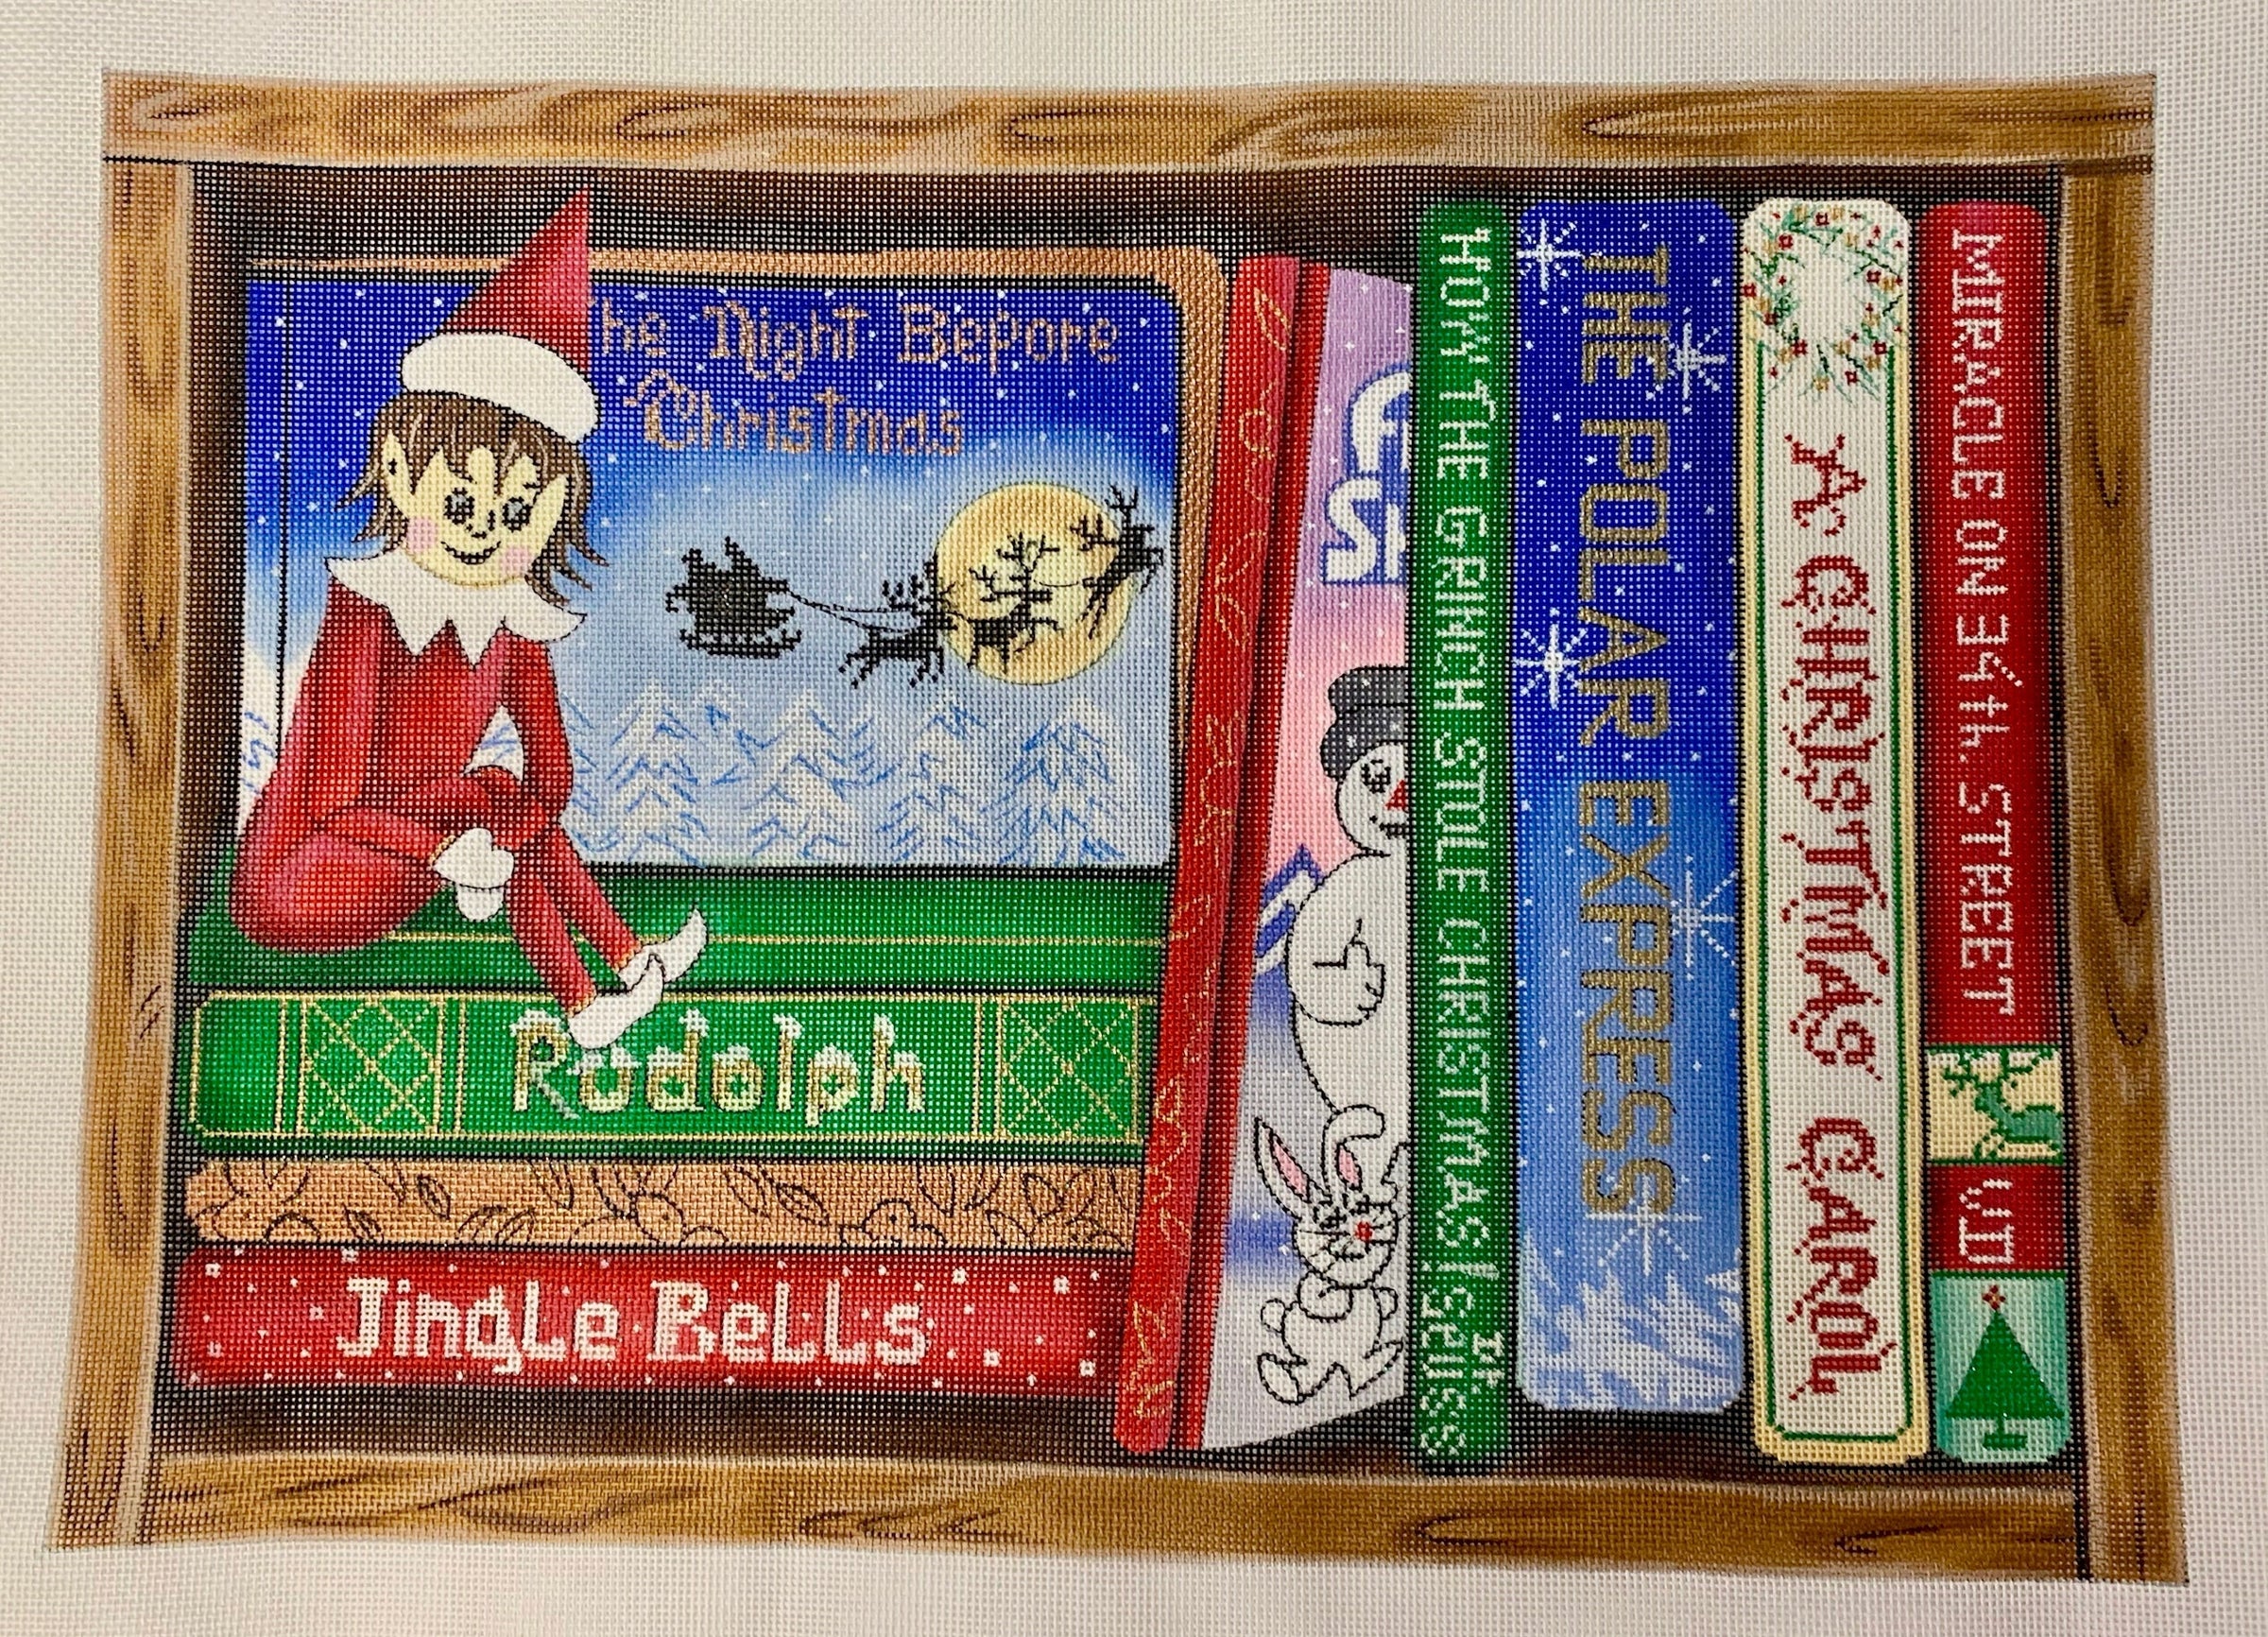 he Night Bepore
Christmas
Rudolph
Jingle Bells
HOW THE GRINCH STOLE CHRISTMAS! Dr. Seuss
THE POLAR EXPRESS
A CHRISTMAS CAROL
MIRACLE ON 34th. STREET
VD